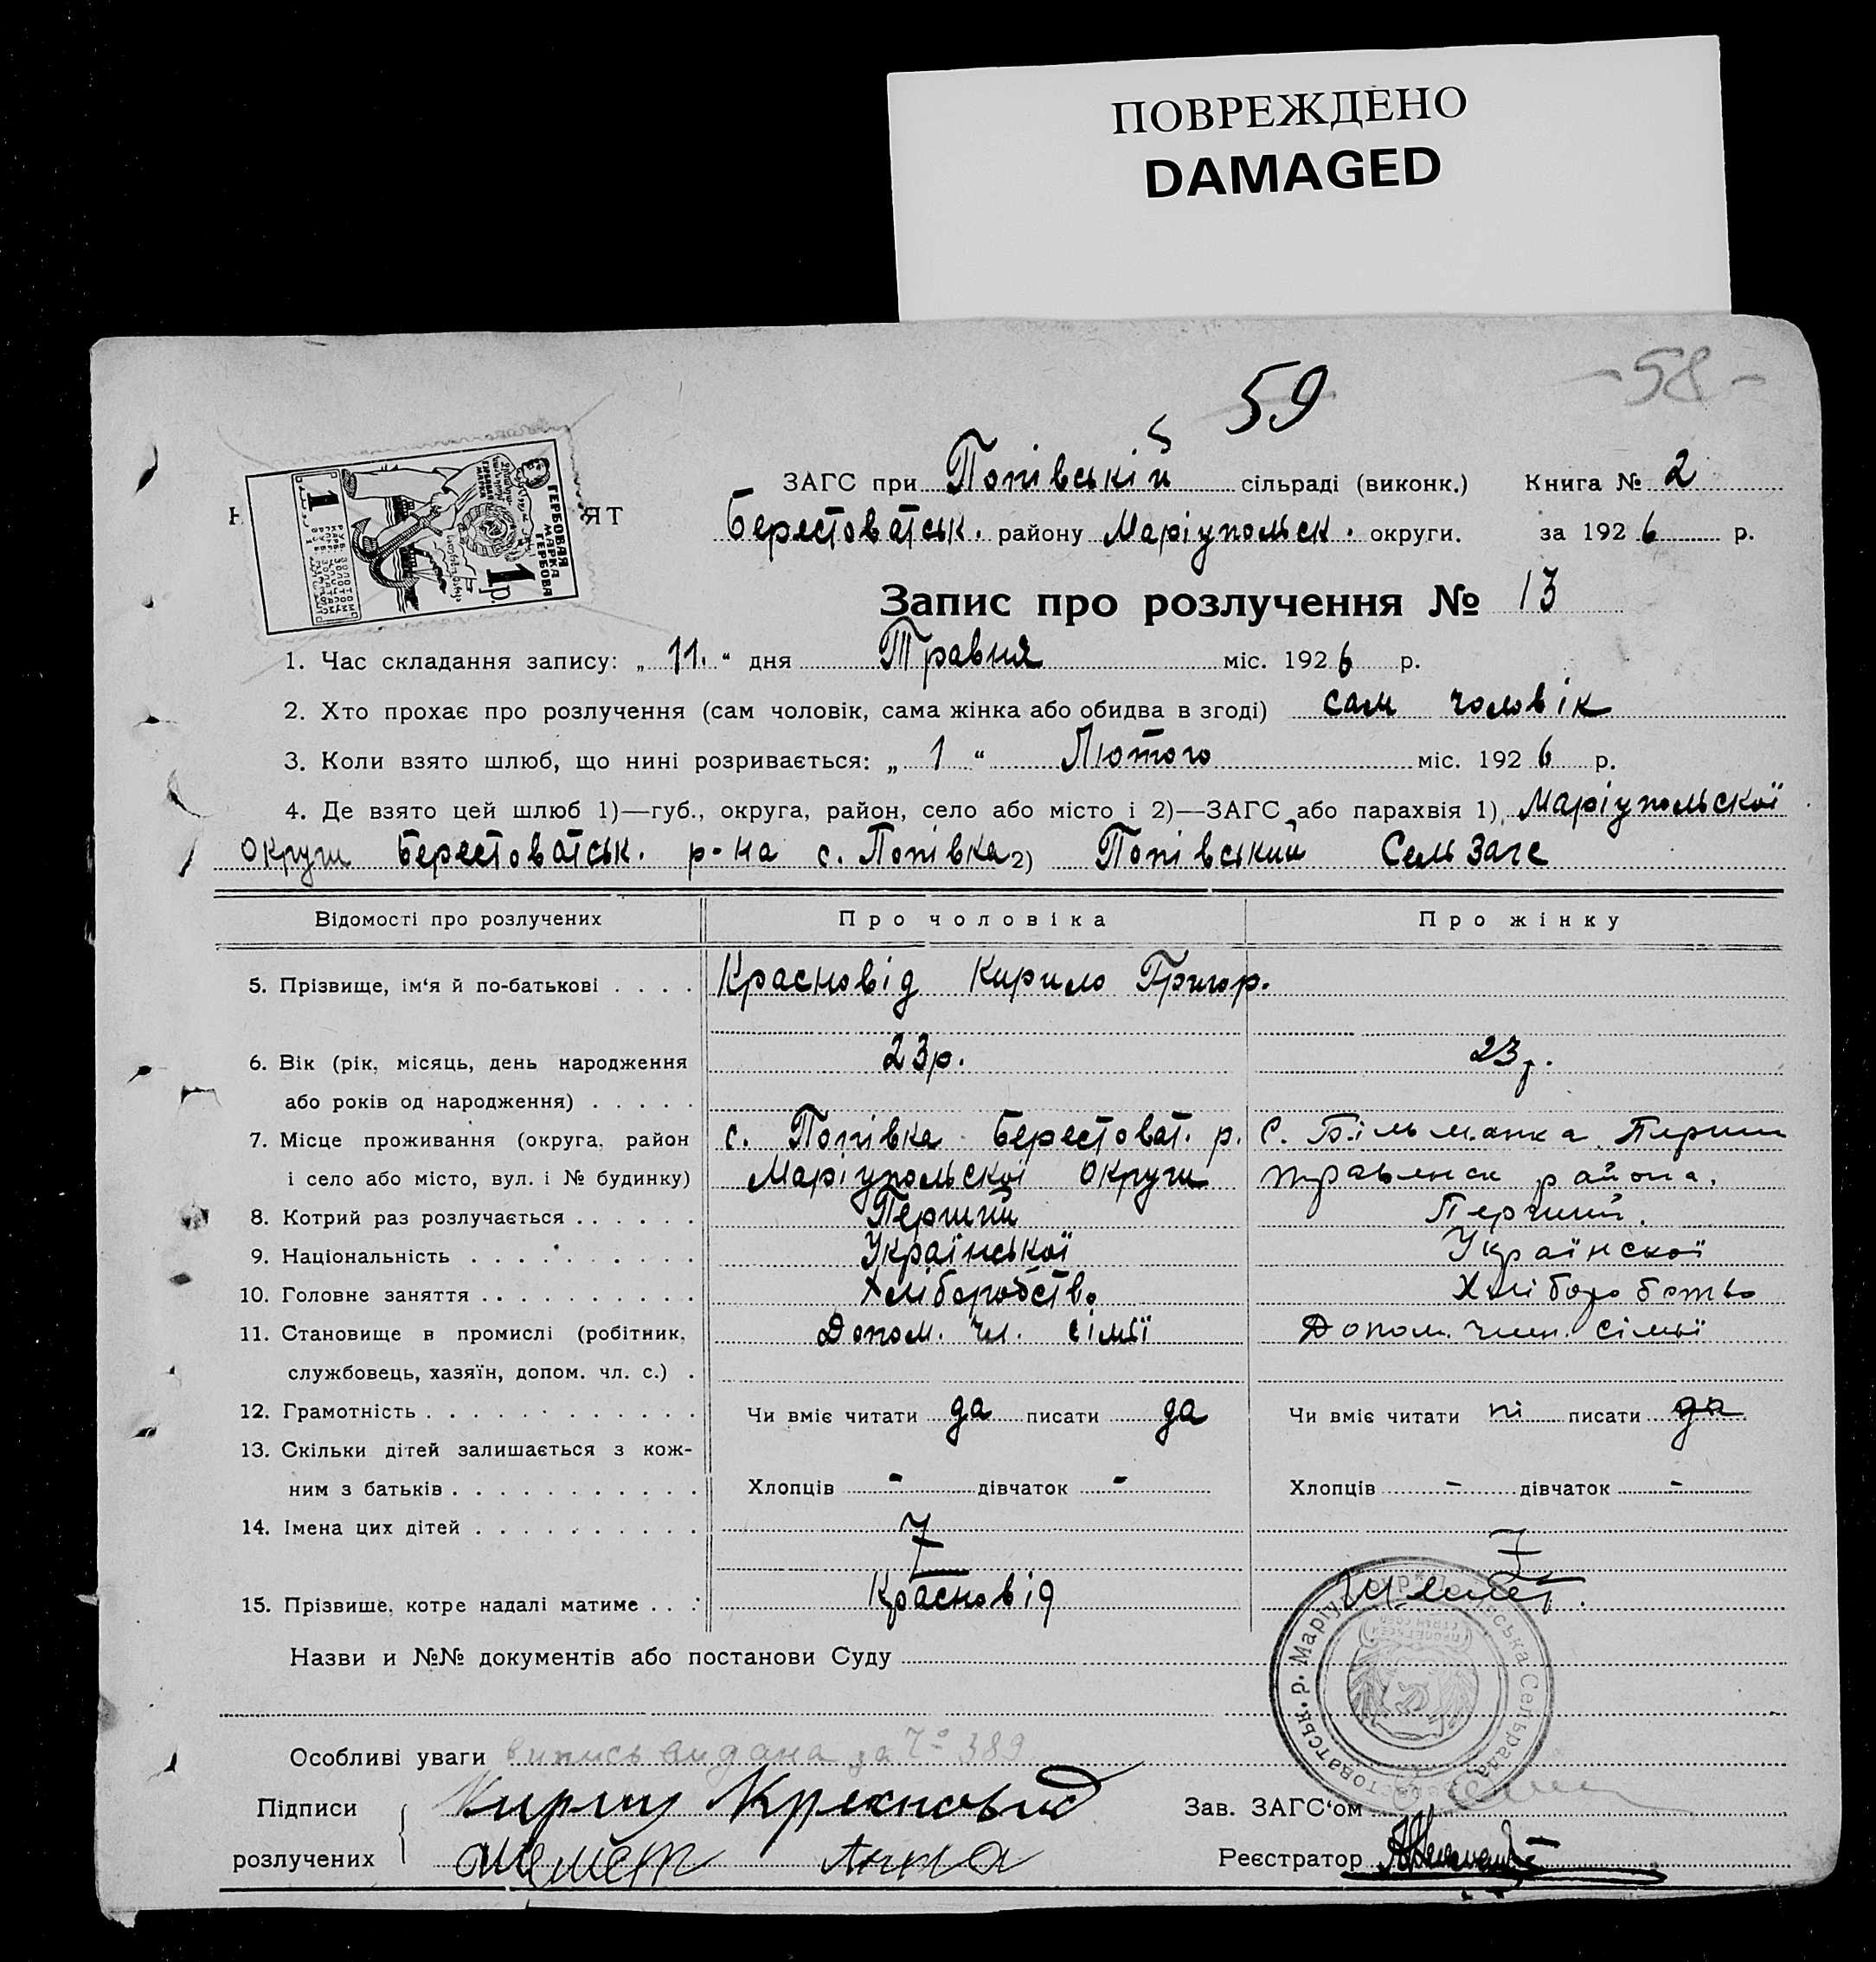 ПОВРЕЖДЕНО
DAMAGED
59
-58-
ГЕРБОВАЯ
МАРКА
ГЕРБОВА
1 р.
1
ЯТ
ЗАГС при Попівській сільраді (виконк.) Книга № 2
Берестоватськ. району Маріупольск. округи. за 1926 р.
Запис про розлучення № 13
1. Час складання запису: „ 11. “ дня Травня міс. 1926 р.
2. Хто прохає про розлучення (сам чоловік, сама жінка або обидва в згоді) сам чоловік
3. Коли взято шлюб, що нині розривається: „ 1 “ Лютого міс. 1926 р.
4. Де взято цей шлюб 1)—губ., округа, район, село або місто і 2)—ЗАГС або парахвія 1) Маріупольскої
Округи Берестоватськ. р-на с. Попівка 2) Попівський Сельзагс
Відомості про розлучених Про чоловіка Про жінку
5. Прізвище, ім‘я й по-батькові . . . . Красновід Кирило Григор.
6. Вік (рік, місяць, день народження 23р. 23р.
або років од народження) . . . . .
7. Місце проживання (округа, район с. Попівка Берестоват. р. С. Більманка Перши
і село або місто, вул. і № будинку) Маріупольскої Округи травенск района.
8. Котрий раз розлучається . . . . . . Перший Перший.
9. Національність . . . . . . . . . . Української Українскої
10. Головне заняття . . . . . . . . . . Хліборобство Хлібороботво
11. Становище в промислі (робітник, Допом. чл. сімї Допом. член. сімьї
службовець, хазяїн, допом. чл. с.) .
12. Грамотність . . . . . . . . . . . . Чи вміє читати да писати да Чи вміє читати ні писати да
13. Скільки дітей залишається з кож-
ним з батьків . . . . . . . . . . . Хлопців - дівчаток - Хлопців - дівчаток -
14. Імена цих дітей . . . . . . . . . .
15. Прізвище, котре надалі матиме . . . Красновід Шемет.
Назви и №№ документів або постанови Суду
Особливі уваги випись видана за № 389
Підписи Кирил Красновид Зав. ЗАГС‘ом
розлучених Шемет Анна Реєстратор